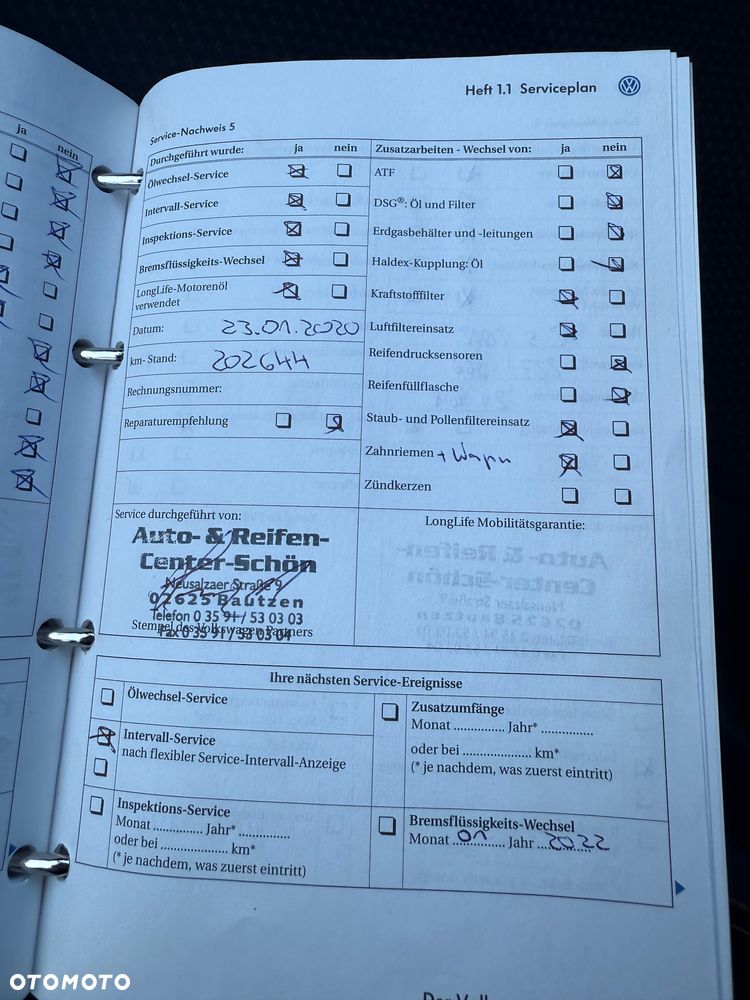 Heft 1.1 Serviceplan
Service-Nachweis 5
Durchgeführt wurde: ja nein
Ölwechsel-Service
Intervall-Service
Inspektions-Service
Bremsflüssigkeits-Wechsel
LongLife-Motorenöl
verwendet
Datum: 23.01.2020
km- Stand: 202644
Rechnungsnummer:
Reparaturempfehlung
Zusatzarbeiten - Wechsel von: ja nein
ATF
DSG®: Öl und Filter
Erdgasbehälter und -leitungen
Haldex-Kupplung: Öl
Kraftstofffilter
Luftfiltereinsatz
Reifendrucksensoren
Reifenfüllflasche
Staub- und Pollenfiltereinsatz
Zahnriemen + Wapu
Zündkerzen
Service durchgeführt von:
Auto- & Reifen-
Center-Schön
Neusalzaer Straße 9
02625 Bautzen
Telefon 0 35 91 / 53 03 03
Stempel des Volkswagen Partners
Fax 0 35 91 / 53 03 04
LongLife Mobilitätsgarantie:
Ihre nächsten Service-Ereignisse
Ölwechsel-Service
Intervall-Service
nach flexibler Service-Intervall-Anzeige
Inspektions-Service
Monat .............. Jahr* ..............
oder bei .................... km*
(* je nachdem, was zuerst eintritt)
Zusatzumfänge
Monat .............. Jahr* ..............
oder bei .................... km*
(* je nachdem, was zuerst eintritt)
Bremsflüssigkeits-Wechsel
Monat 01 Jahr 2022
ja
nein
OTOMOTO